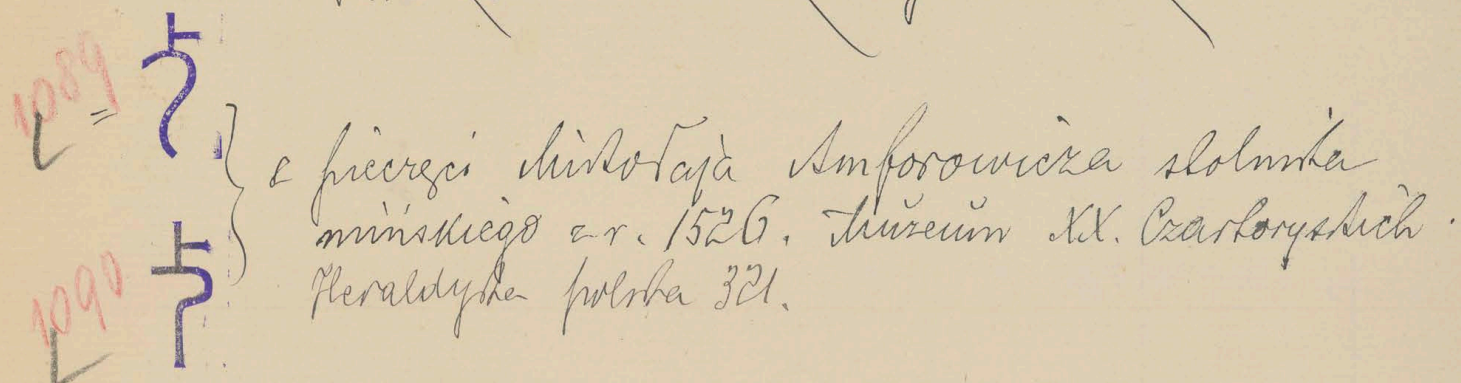 1089 =
z pieczęci Mikołaja Amforowicza stolnika
mińskiego z r. 1526. Muzeum XX. Czartoryskich.
1090
Heraldyka polska 321.